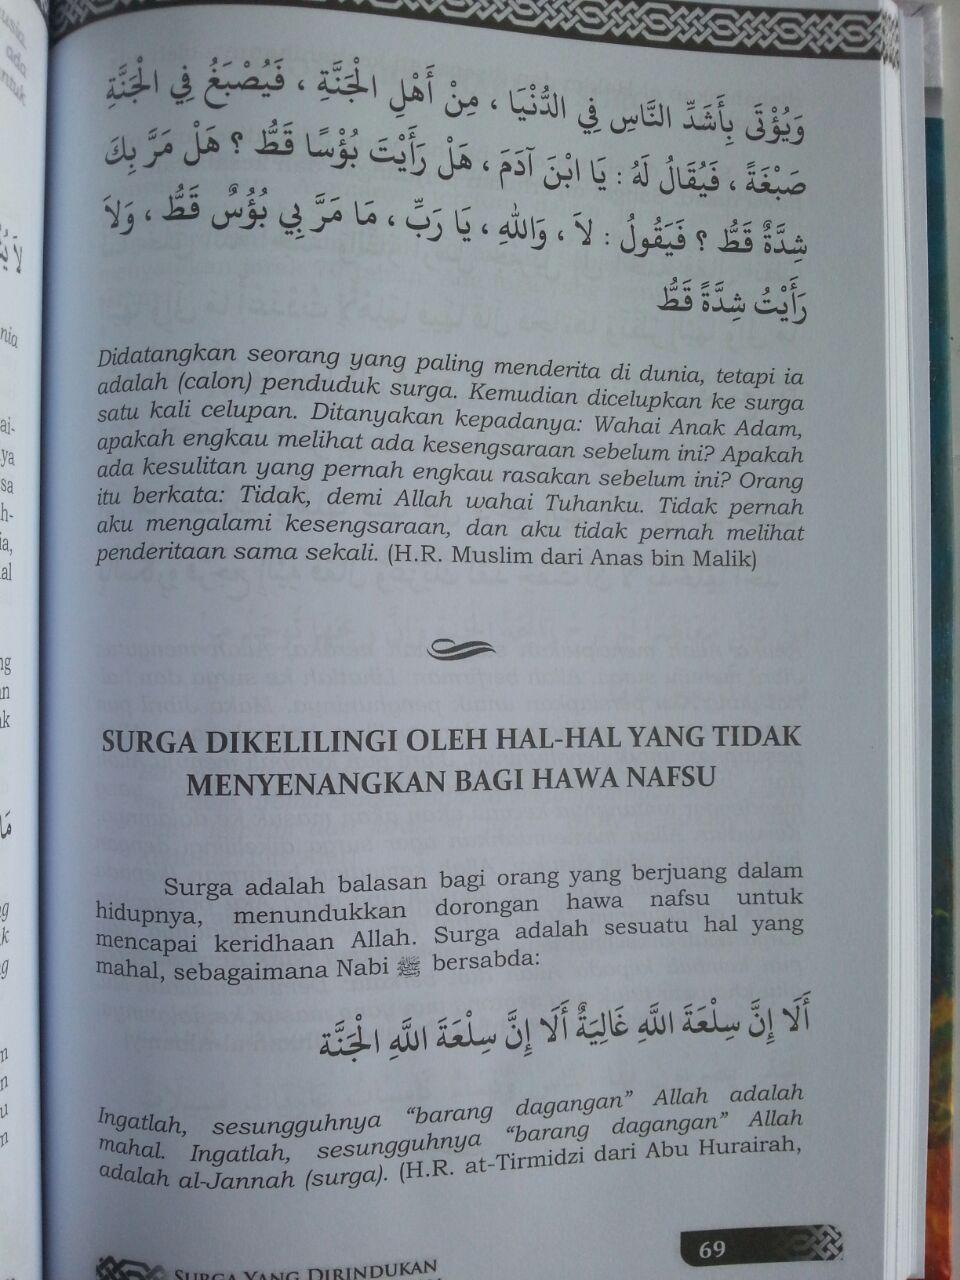 وَيُؤْتَى بِأَشَدِّ النَّاسِ فِي الدُّنْيَا ، مِنْ أَهْلِ الْجَنَّةِ ، فَيُصْبَغُ فِي الْجَنَّةِ
صَبْغَةً ، فَيُقَالُ لَهُ : يَا ابْنَ آدَمَ ، هَلْ رَأَيْتَ بُؤْسًا قَطُّ ؟ هَلْ مَرَّ بِكَ
شِدَّةٌ قَطُّ ؟ فَيَقُولُ : لاَ ، وَاللهِ ، يَا رَبِّ ، مَا مَرَّ بِي بُؤُسٌ قَطُّ ، وَلاَ
رَأَيْتُ شِدَّةً قَطُّ
Didatangkan seorang yang paling menderita di dunia, tetapi ia
adalah (calon) penduduk surga. Kemudian dicelupkan ke surga
satu kali celupan. Ditanyakan kepadanya: Wahai Anak Adam,
apakah engkau melihat ada kesengsaraan sebelum ini? Apakah
ada kesulitan yang pernah engkau rasakan sebelum ini? Orang
itu berkata: Tidak, demi Allah wahai Tuhanku. Tidak pernah
aku mengalami kesengsaraan, dan aku tidak pernah melihat
penderitaan sama sekali. (H.R. Muslim dari Anas bin Malik)
SURGA DIKELILINGI OLEH HAL-HAL YANG TIDAK
MENYENANGKAN BAGI HAWA NAFSU
Surga adalah balasan bagi orang yang berjuang dalam
hidupnya, menundukkan dorongan hawa nafsu untuk
mencapai keridhaan Allah. Surga adalah sesuatu hal yang
mahal, sebagaimana Nabi ﷺ bersabda:
أَلَا إِنَّ سِلْعَةَ اللَّهِ غَالِيَةٌ أَلَا إِنَّ سِلْعَةَ اللَّهِ الْجَنَّة
Ingatlah, sesungguhnya “barang dagangan” Allah adalah
mahal. Ingatlah, sesungguhnya “barang dagangan” Allah
adalah al-Jannah (surga). (H.R. at-Tirmidzi dari Abu Hurairah,
69
SURGA YANG DIRINDUKAN